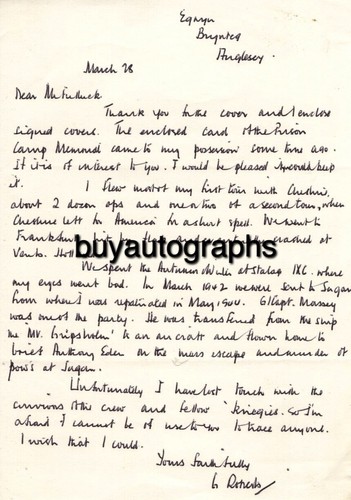 Egwyn
Brynteg
Anglesey.
March 28
Dear Mr Fulluck
Thank you for the cover and I enclose
signed covers. The enclosed card of the Prison
Camp Memorial came to my possession some time ago.
If it is of interest to you. I would be pleased if you could keep
it.
I flew most of my first tour with Cheshire,
about 2 dozen ops and one or two of a second tour, when
Cheshire left for America for a short spell. We went to
Frankfurt, hit by flak and crashed at
Venlo. Holland
buyautographs
We spent the Autumn at Stalag IXC. where
my eyes went bad. In March 1942 we were sent to Sagan
from where I was repatriated in May, 1944. G/Capt. Massey
was in the party. He was transferred from the ship
the MV. Gripsholm to an aircraft and flown home to
brief Anthony Eden on the mass escape and murder of
pow's at Sagan.
Unfortunately I have lost touch with the
survivors of the crew and fellow 'kriegies. So I'm
afraid I cannot be of use to you to trace anyone.
I wish that I could.
Yours faithfully
G Roberts